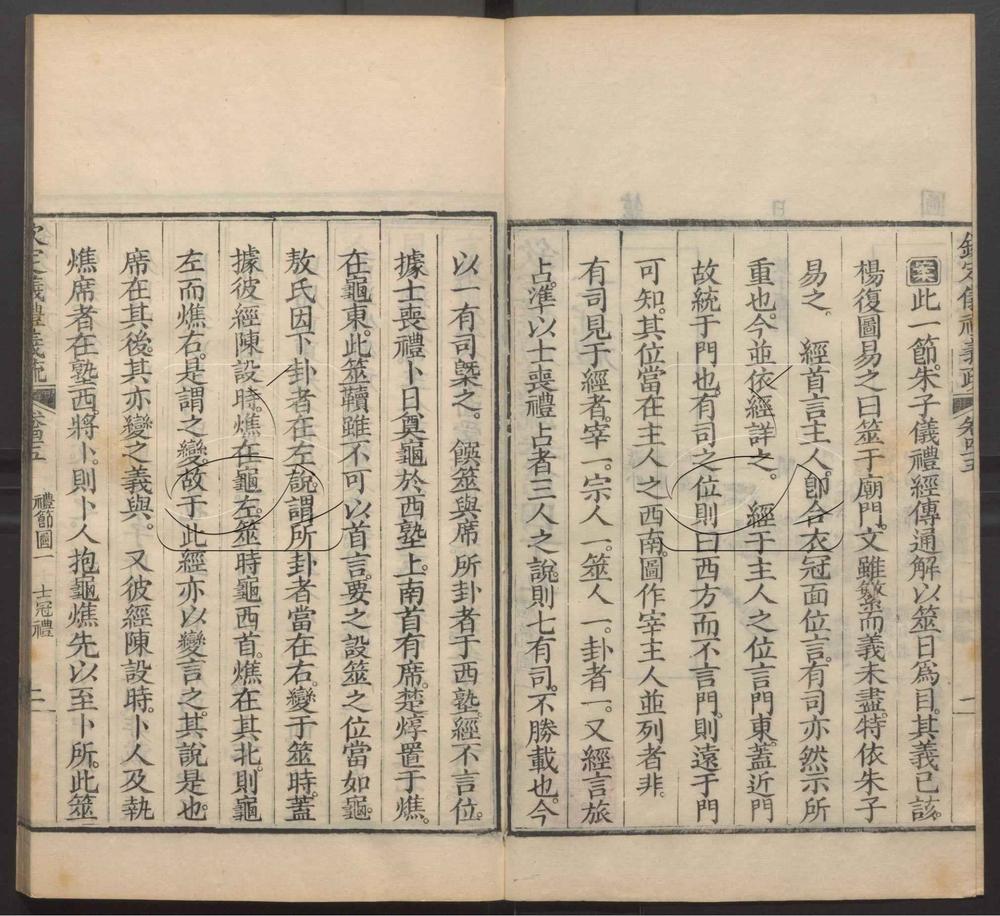 欽定儀禮義疏 卷四十五
案此一節。朱子儀禮經傳通解以筮日爲目。其義已該。
楊復圖易之曰筮于廟門。文雖繁而義未盡。特依朱子
易之。 經首言主人。卽合衣冠面位言。有司亦然示所
重也。今並依經詳之。 經于主人之位言門東。蓋近門
故統于門也。有司之位則曰西方而不言門。則遠于門
可知。其位當在主人之西南。圖作宰主人並列者非。
有司見于經者。宰一。宗人一。筮人一。卦者一。又經言旅
占。準以士喪禮占者三人之說。則七有司。不勝載也。今
一
以一有司槩之。 饌筮與席所卦者于西塾。經不言位。
據士喪禮卜日奠龜於西塾上。南首有席。楚焞置于燋。
在龜東。此筮韇雖不可以首言。要之設筮之位當如龜。
敖氏因下卦者在左。說謂所卦者當在右。變于筮時。蓋
據彼經陳設時。燋在龜左。筮時龜西首。燋在其北。則龜
左而燋右。是謂之變。故于此經亦以變言之。其說是也。
席在其後。其亦變之義與。 又彼經陳設時。卜人及執
燋席者在塾西。將卜。則卜人抱龜燋先以至卜所。此筮
欽定儀禮義疏 卷四十五 禮節圖一 士冠禮 二